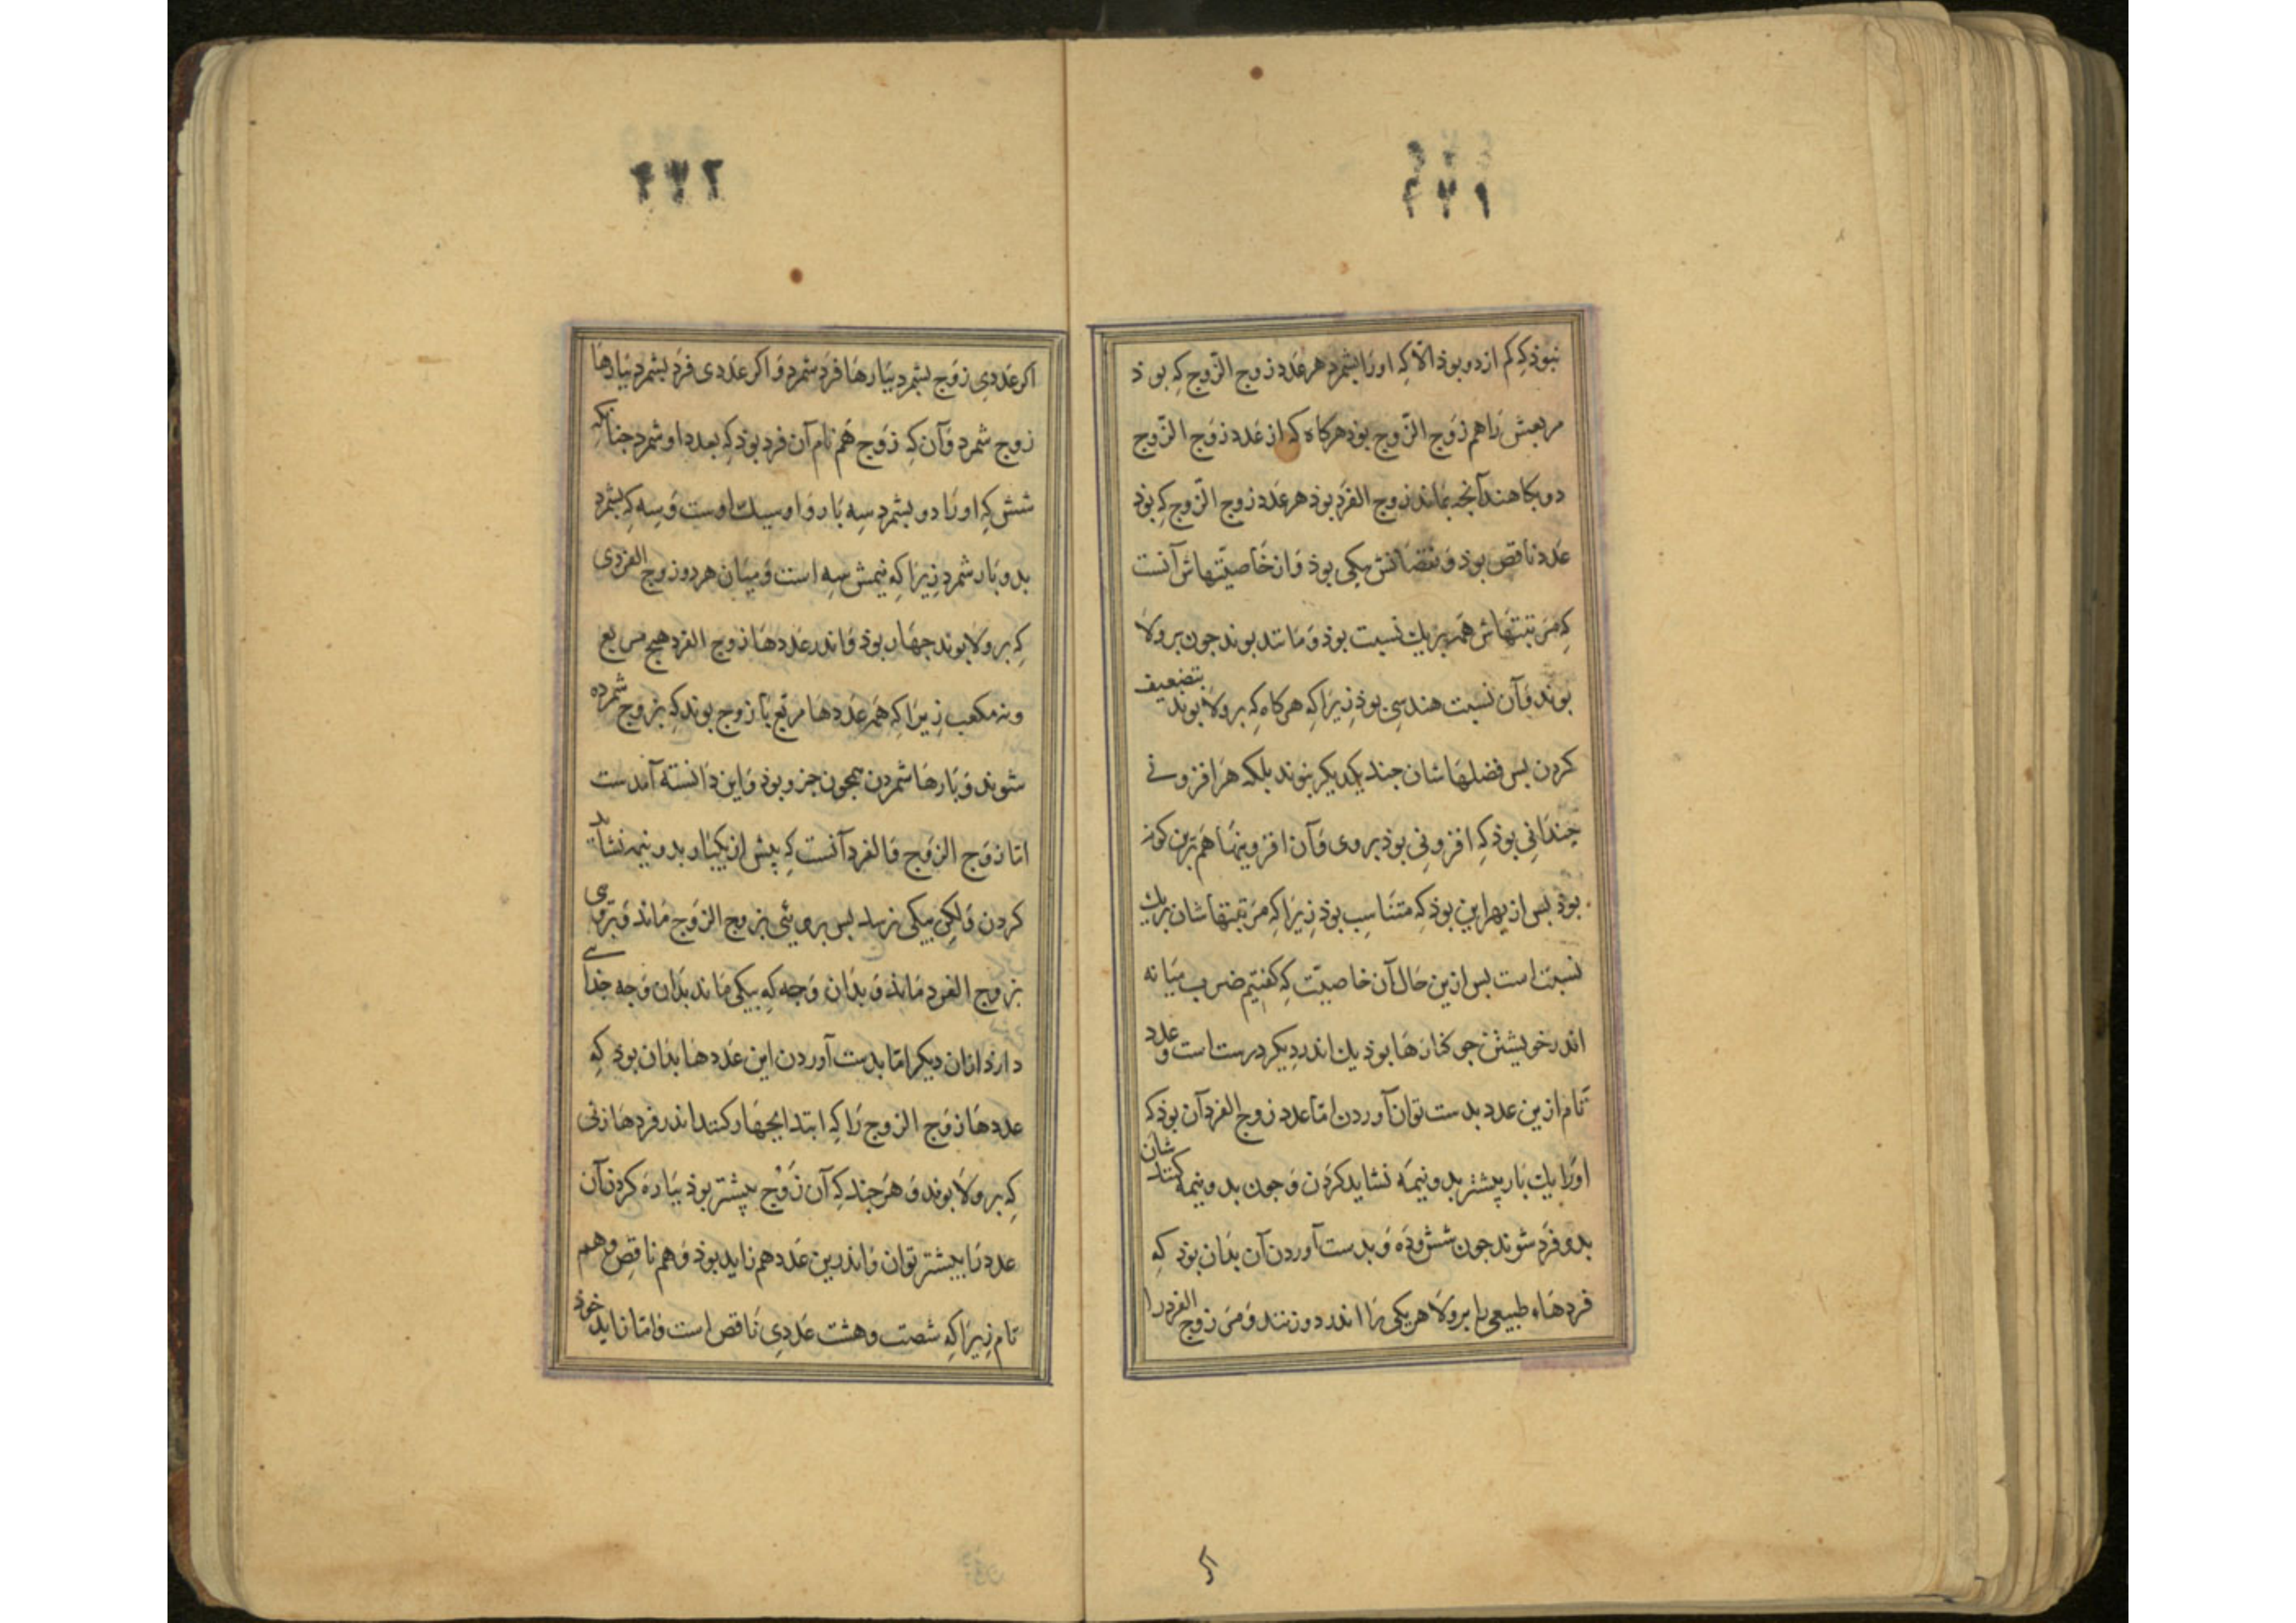 ۴۷۱
نبوذ که کم از دو بوذ الّا که اورا بشمرد هر عدد زوج الزّوج که بوذ
مربعش را هم زوج الزّوج بوذ هرکاه که از عدد زوج الزّوج
دو بکاهند آنجه بماند زوج الفرد بوذ هر عدد زوج الزّوج که بوذ
عدد ناقص بوذ و نقصانش یکی بوذ و ان خاصیّتهاش آنست
که مرتبتهاش همه بر یك نسبت بوذ و مانند بوند جون برولا
بوند و آن نسبت هندسی بوذ زیرا که هرکاه که برولا بوند بتضعیف
کردن بس فضلهاشان جند یکدیکر بنوند بلکه هر افزونی
جندانی بوذ که افزونی بوذ بروی و آن افزونیها هم برین کونه
بوذ بس از بهر این بوذ که متناسب بوذ زیرا که مرتبتهاشان بریك
نسبت است بس ازین حال آن خاصیّت که کفتیم ضرب میانه
اندر خویشتن جو کنارها بوذ یك اندر دیکر درست است و عدد
تام ازین عدد بدست توان آوردن امّا عدد زوج الفرد آن بوذ که
اورا یك بار بیشتر بدو نیمه نشاید کردن و جون بدو نیمه کنند شان
بدو فرد شوند جون شش و ده و بدست آوردن آن بذان بوذ که
فردهاء طبیعی را برولا هر یکی را اندر دو زنند و مر زوج الفرد را
۴۷۲
اکر عددی زوج بشمرد ببارها فرد شمرد و اکر عددی فرد بشمرد ببارها
زوج شمرد و آن که زوج هم نام آن فرد بوذ که بعدد او شمرد جنانکه
شش که اورا دو بشمرد سه بار و او سیك اوست و سه که بشمرد
بدو بار شمرد زیرا که نیمش سه است و میان هر دو زوج الفردی
که برولا بوند جهار بوذ و اندر عددها زوج الفرد هیج مربع
و نه مکعب زیرا که همه عددها مربع با زوج بوند که بزوج شمرده
شوند و بارها شمردن همجون جزو بوذ و این دانسته آمدست
امّا زوج الزّوج و الفرد آنست که بیش از یکبار بدو نیمه نشاید
کردن ولکن بیکی نرسد بس بروئی بزوج الزوج ماند و بروی
بزوج الفرد ماند و بدان وجه که بیکی ماند بدان وجه جدا
دارد ازان دیکر امّا بدست آوردن این عددها بدان بوذ که
عددها زوج الزوج را که ابتدا بجهار کنند اندر فردها زنی
که برولا بوند و هر جند که آن زوج بیشتر بوذ بباره کردن آن
عدد را بیشتر توان و اندرین عدد هم زاید بوذ و هم ناقص و هم
تام زیرا که شصت و هشت عددی ناقص است و امّا زاید خوذ